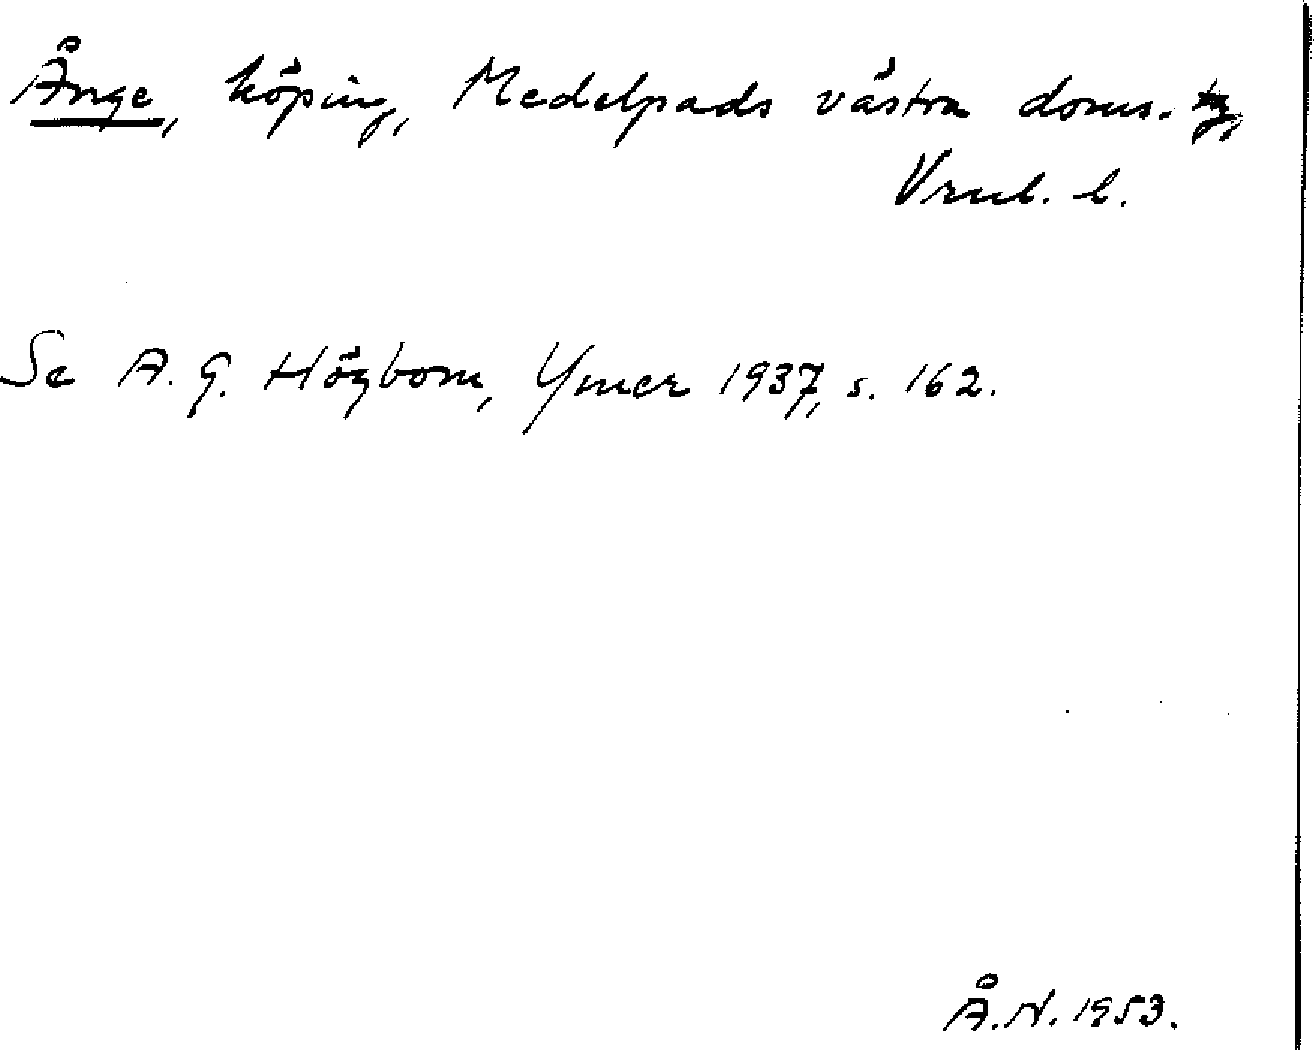 Ånge, köping, Medelpads västra doms.
Vrnl. l.
Se A. G. Högbom, Ymer 1937, s. 162.
Å.N. 1953.